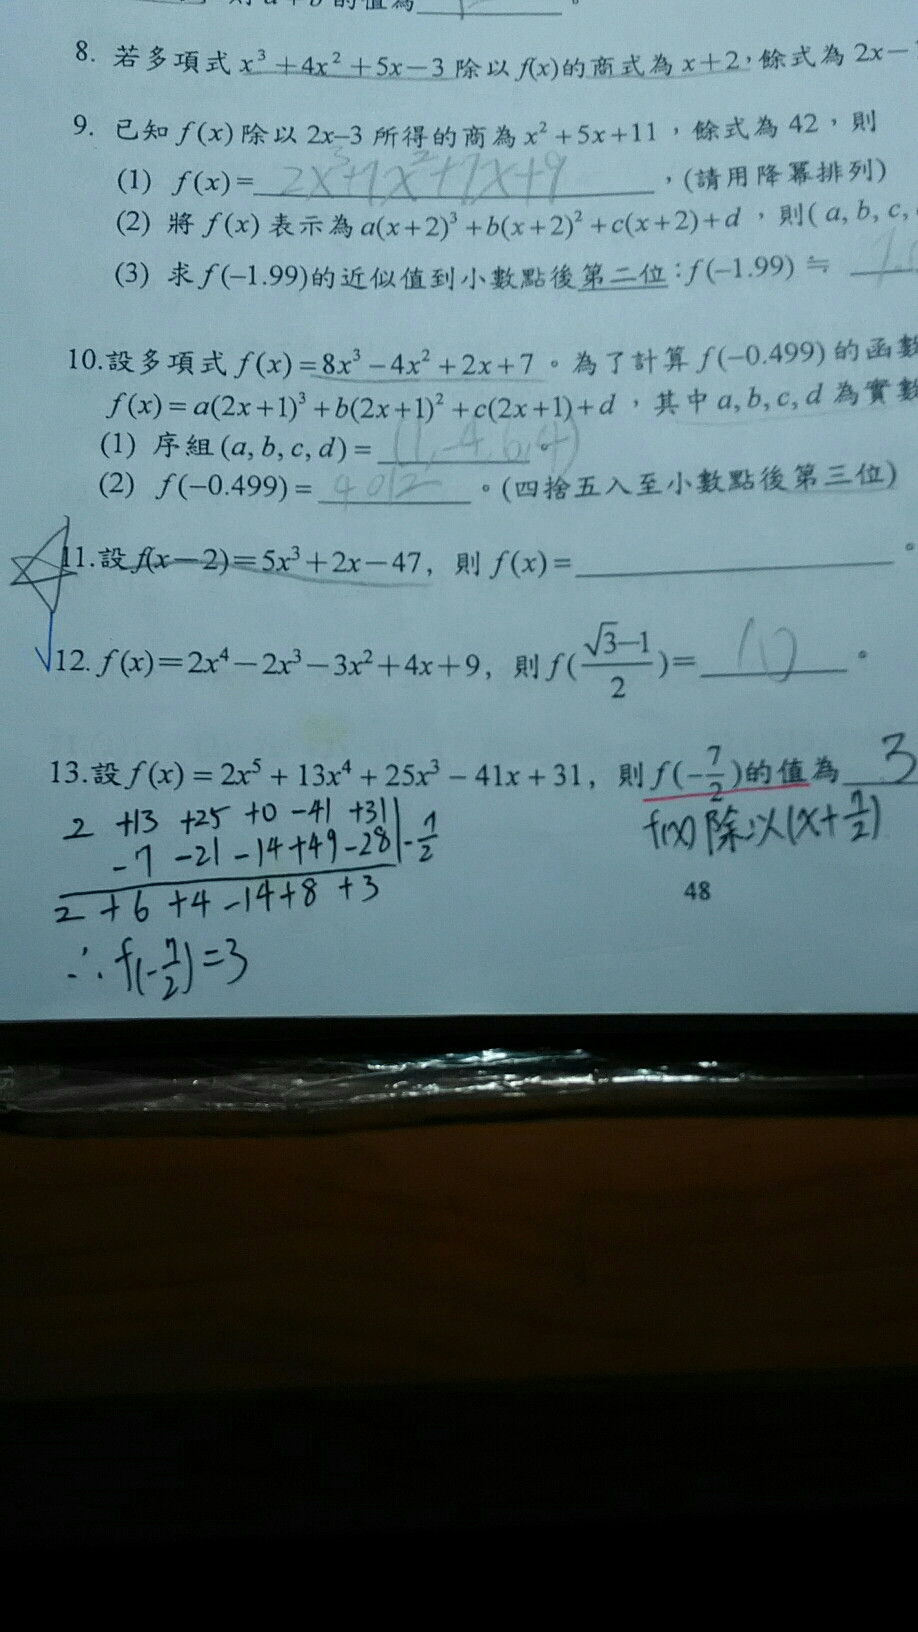 則a+b的值為
8. 若多項式 x³+4x²+5x−3 除以 f(x)的商式為 x+2,餘式為 2x−
9. 已知 f(x) 除以 2x−3 所得的商為 x²+5x+11,餘式為 42,則
(1) f(x)= 2x³+7x²+7x+9 ,(請用降冪排列)
(2) 將 f(x) 表示為 a(x+2)³+b(x+2)²+c(x+2)+d ,則( a, b, c,
(3) 求 f(−1.99)的近似值到小數點後第二位:f(−1.99) ≒
10.設多項式 f(x)=8x³−4x²+2x+7 。為了計算 f(−0.499) 的函數
f(x)=a(2x+1)³+b(2x+1)²+c(2x+1)+d ,其中 a, b, c, d 為實數
(1) 序組 (a, b, c, d) = (1,-4,6,4) 。
(2) f(−0.499) = 4012 。(四捨五入至小數點後第三位)
11.設 f(x−2)=5x³+2x−47, 則 f(x)= 。
√12. f(x)=2x⁴−2x³−3x²+4x+9, 則 f((√3−1)/2)= 10 。
13.設 f(x) = 2x⁵ + 13x⁴ + 25x³ − 41x + 31, 則 f(−7/2)的值為 3
f(x) 除以(x+7/2)
2 +13 +25 +0 -41 +31 | -7/2
-7 -21 -14 +49 -28
2 +6 +4 -14 +8 +3
∴ f(-7/2)=3
48